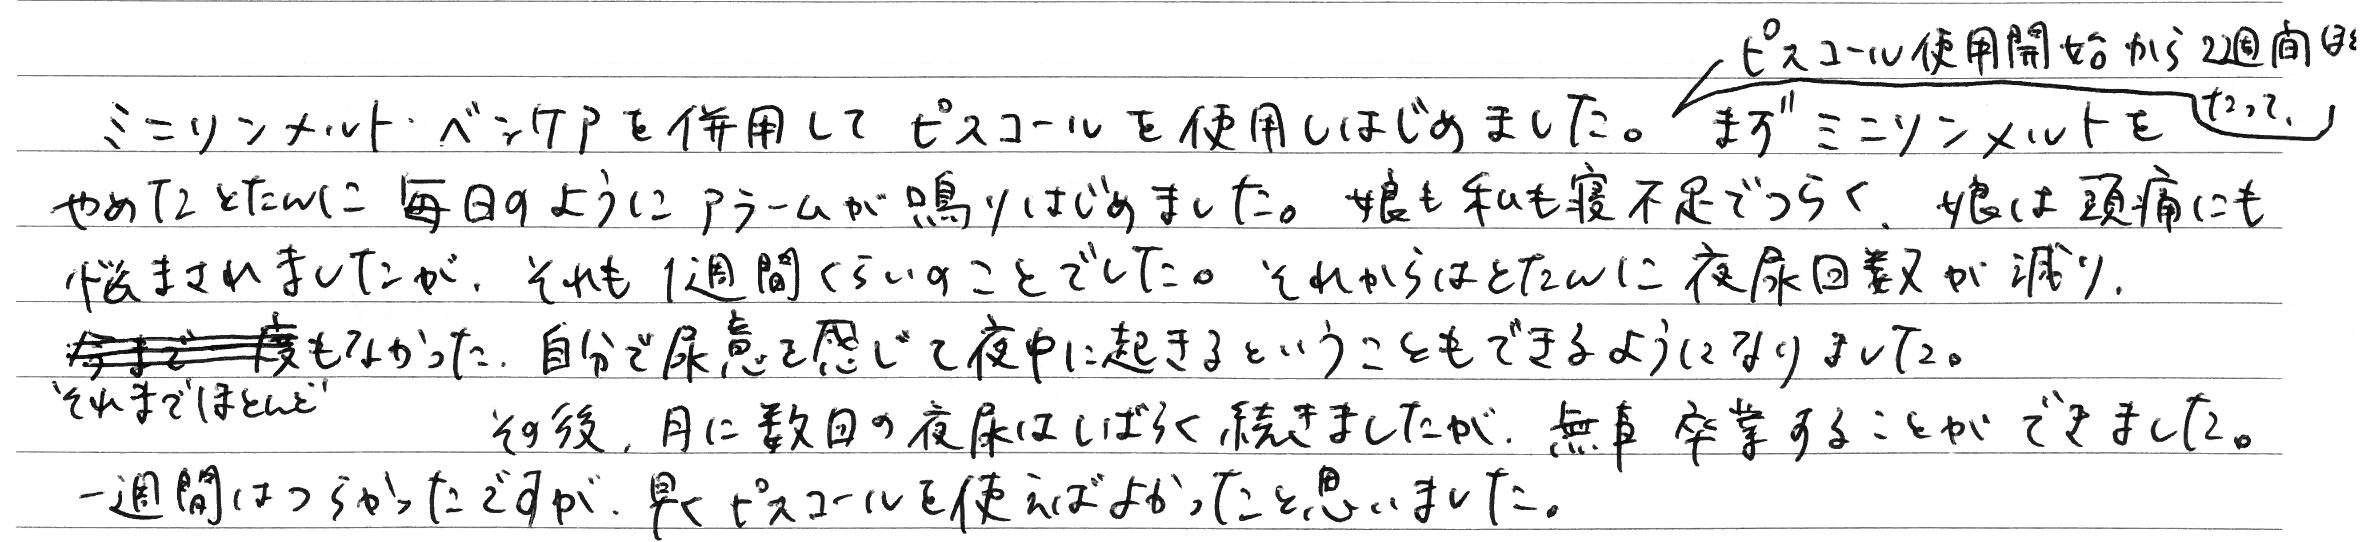 ピスコール使用開始から2週間ほど
たって、
ミニリンメルト・ベシケアを併用してピスコールを使用しはじめました。まずミニリンメルトを
やめたとたんに毎日のようにアラームが鳴りはじめました。娘も私も寝不足でつらく、娘は頭痛にも
悩まされましたが、それも1週間くらいのことでした。それからはとたんに夜尿回数が減り、
今まで一度もなかった、自分で尿意を感じて夜中に起きるということもできるようになりました。
それまでほとんど
その後、月に数回の夜尿はしばらく続きましたが、無事卒業することができました。
一週間はつらかったですが、早くピスコールを使えばよかったと思いました。